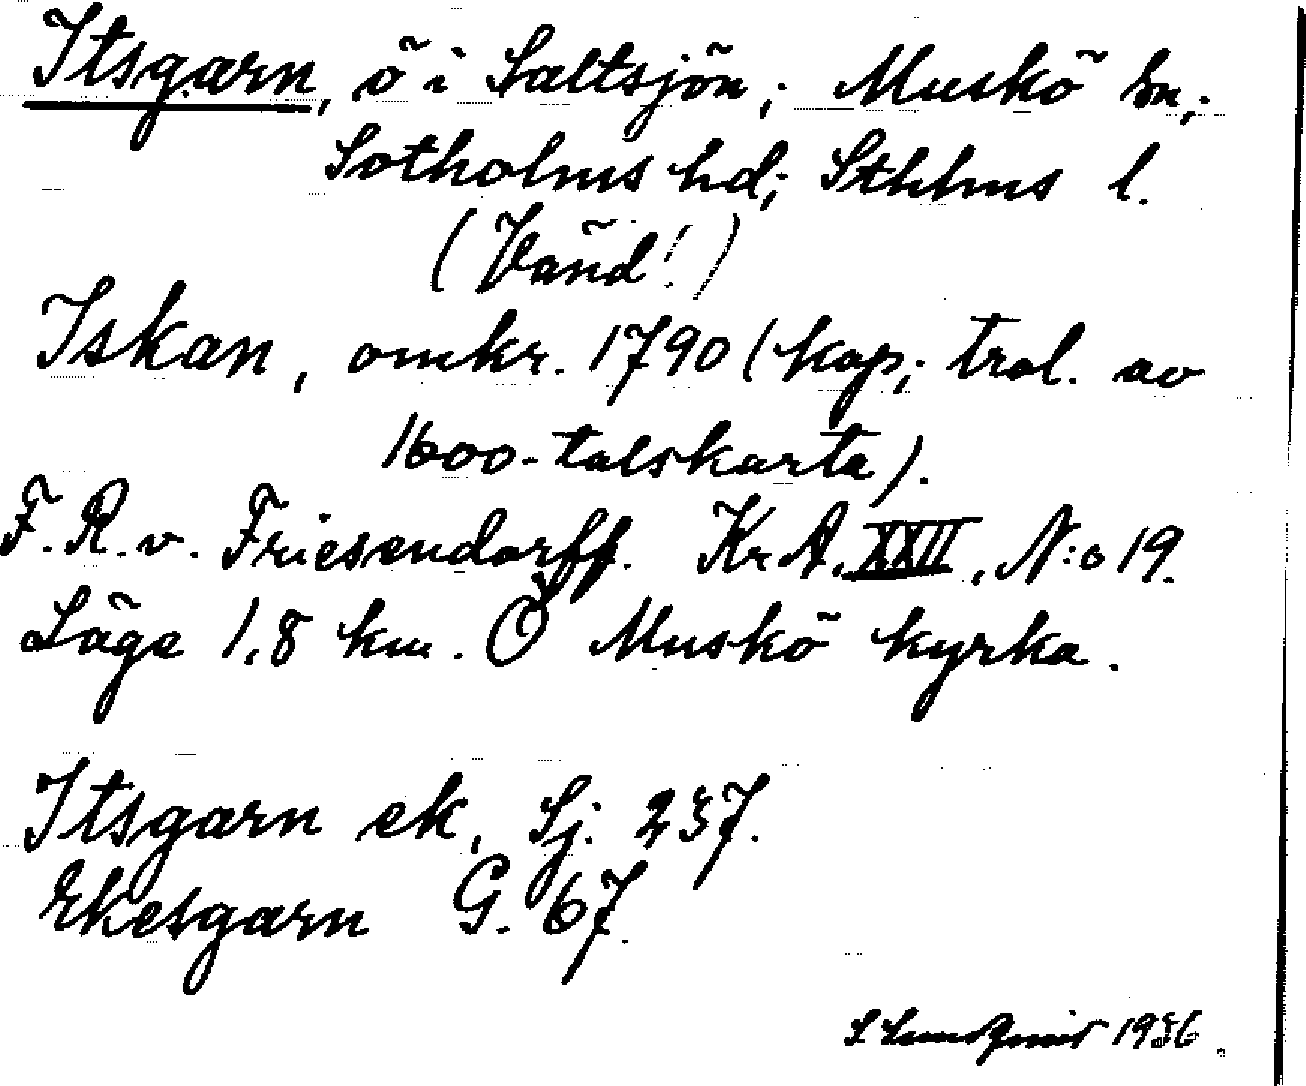 Itsgarn, ö i Saltsjön; Muskö sn.;
Sotholms hd; Sthlms l.
(Vänd!)
Iskan, omkr. 1790 (kop; trol. av
1600-talskarta).
F. R. v. Friesendorff. Kr A. XXII, N:o 19.
Läge 1,8 km. Ö Muskö kyrka.
Itsgarn ek. Sj. 237.
Ekesgarn G. 67.
S Lundqvist 1936.